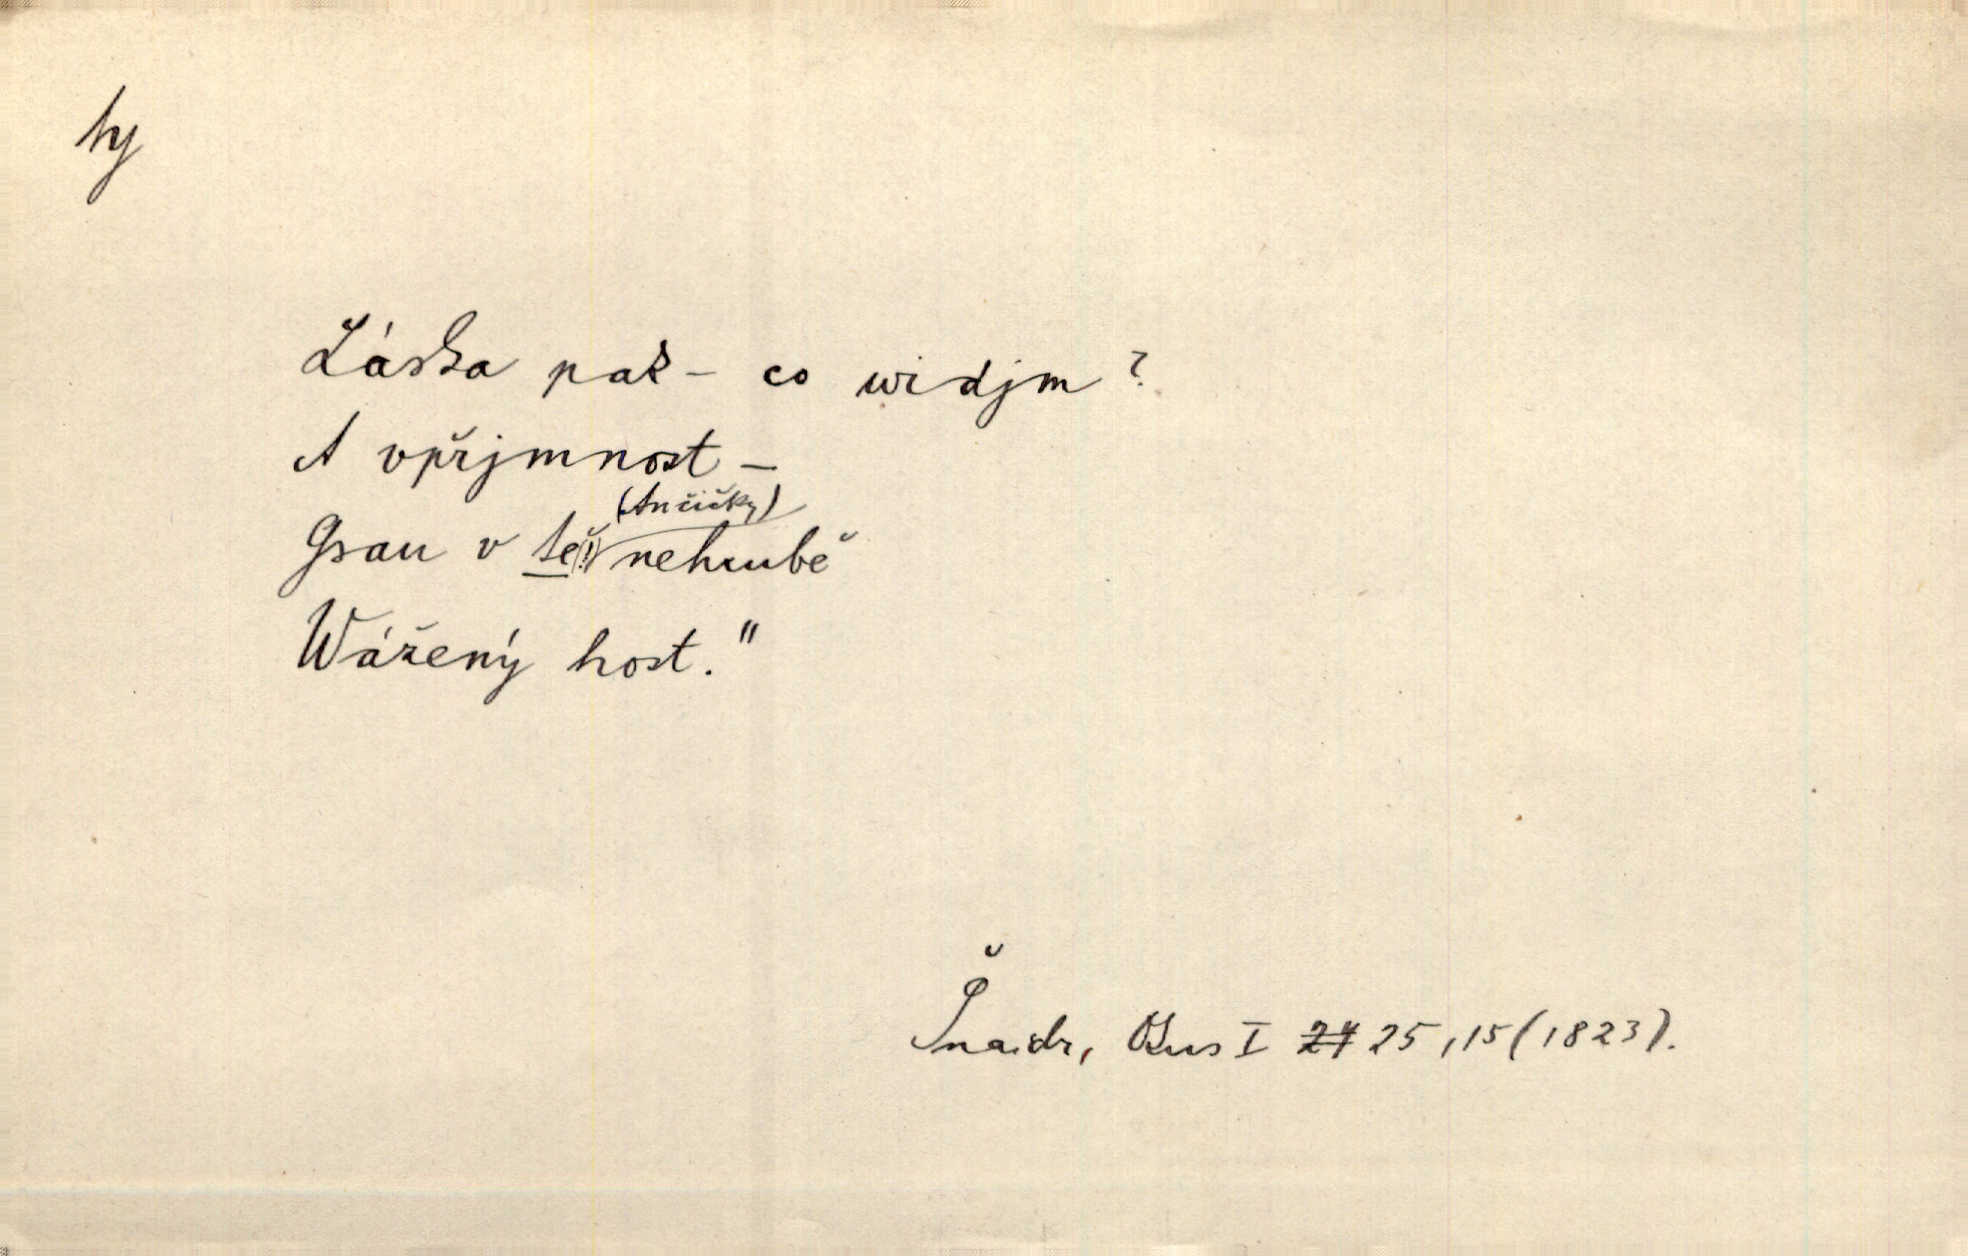 ty
Láska pak – co widjm?
A vpřjmnost –
Gsau v tě(!) (Ančičky) nehrubě
Wážený host."
Šnaidr, Okus I 24 25, 15 (1823).